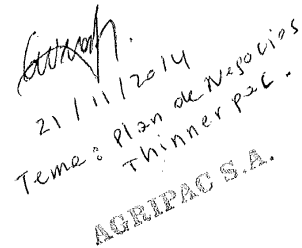 21/11/2014
Tema: Plan de Negocios
Thinner pac.
AGRIPAC S.A.